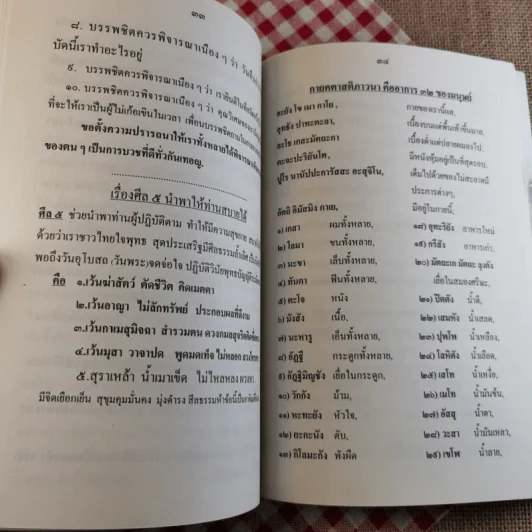 ๓๓
๘. บรรพชิตควรพิจารณาเนือง ๆ ว่า วันคืน
บัดนี้เราทำอะไรอยู่
๙. บรรพชิตควรพิจารณาเนือง ๆ ว่า เรายินดีในที่
๑๐. บรรพชิตควรพิจารณาเนือง ๆ ว่า คุณวิเศษของ
ที่จะให้เราเป็นผู้ไม่เก้อเขินในเวลา เพื่อนบรรพชิตถามใน
ขอตั้งความปรารถนาให้เราทั้งหลายได้พิจารณา
ของตน ๆ เป็นการบวชที่ดีทั่วกันเทอญ.
เรื่องศีล ๕ นำพาให้ท่านสบายได้
ศีล ๕ ช่วยนำพาท่านผู้ปฏิบัติตาม ทำให้มีความสุขกาย
ด้วยว่าเราชาวไทยใจพุทธ สุดประเสริฐมีศีลธรรมล้ำเลิศ
พอถึงวันอุโบสถ (วันพระ) จดจ่อใจ ปฏิบัติวินัยพุทธบัญญัติ
คือ ๑.เว้นฆ่าสัตว์ ตัดชีวิต คิดเมตตา
๒.เว้นอาญา ไม่ลักทรัพย์ ประกอบผลที่ดีงาม
๓.เว้นกาเมสุมิจฉา สำรวมตน ดวงกมลสุจริต
๔.เว้นมุสา วาจาปด พูดมดเท็จ ไม่หลอกลวง
๕.สุราเหล้า น้ำเมาเข็ด ไม่ไหลหลง
มีจิตเยือกเย็น สุขุมคุมมั่นคง มุ่งดำรง ศีลธรรมห้าข้อนี้เป็น
๓๔
กายคตาสติภาวนา คืออาการ ๓๒ ของมนุษย์
อะยัง โข เม กาโย, กายของเรานี้แล,
อุทธัง ปาทะตะลา, เบื้องบนแต่พื้นเท้าขึ้นมา,
อะโธ เกสะมัตถะกา เบื้องต่ำแต่ปลายผมลงไป,
ตะจะปะริยันโต, มีหนังหุ้มอยู่เป็นที่สุดรอบ,
ปูโร นานัปปะการัสสะ อะสุจิโน, เต็มไปด้วยของไม่สะอาดมี
ประการต่างๆ,
อัตถิ อิมัสมิง กาเย, มีอยู่ในกายนี้,
๑) เกสา ผมทั้งหลาย, ๑๘) อุทะริยัง อาหารใหม่
๒) โลมา ขนทั้งหลาย, ๑๙) กะรีสัง อาหารเก่า,
๓) นะขา เล็บทั้งหลาย, ๒๐) มัตถะเก มัตถะ ลุงคัง
๔) ทันตา ฟันทั้งหลาย, เยื่อในสมองศรีษะ,
๕) ตะโจ หนัง ๒๑) ปิตตัง น้ำดี,
๖) มังสัง เนื้อ, ๒๒) เสมหัง น้ำเสลด,
๗) นะหารู เอ็นทั้งหลาย, ๒๓) ปุพโพ น้ำเหลือง,
๘) อัฏฐี กระดูกทั้งหลาย, ๒๔) โลหิตัง น้ำเลือด,
๙) อัฏฐิมิญชัง เยื่อในกระดูก, ๒๕) เสโท น้ำเหงื่อ,
๑๐) วักกัง ม้าม, ๒๖) เมโท น้ำมันข้น,
๑๑) หะทะยัง หัวใจ, ๒๗) อัสสุ น้ำตา,
๑๒) ยะกะนัง ตับ, ๒๘) วะสา น้ำมันเหลว,
๑๓) กิโลมะกัง พังผืด ๒๙) เขโฬ น้ำลาย,